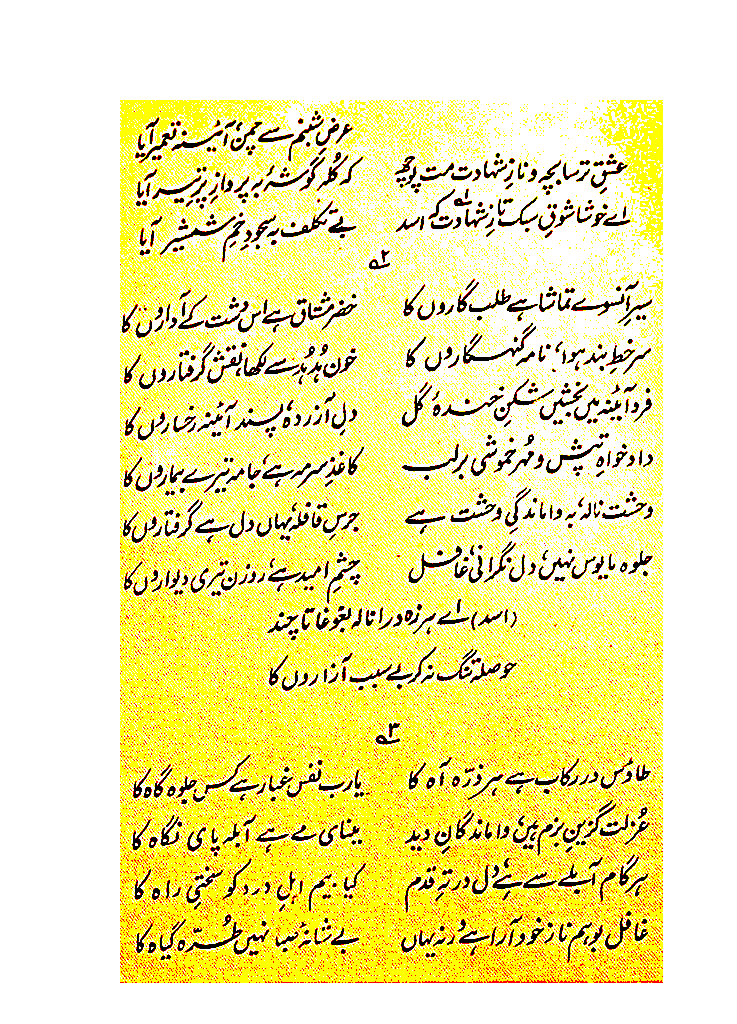 عرضِ شبنم سے چمن، آئینہ تعمیر آیا
عشقِ ترسا بچہ و نازِ شہادت مت پوچھ کہ کُلہ گوشہ بہ پروازِ پرِ تیر آیا
اے خوشا شوقِ سبک تازِ شہادت کہ اسد بے تکلف بہ سجودِ خمِ شمشیر آیا
۲
سیرِ آنسوے تماشا ہے طلب گاروں کا خضر مشتاق ہے اس دشت کے آواروں کا
سر خطِ بند ہوا، نامہ گنہگاروں کا خونِ ہُدہُد سے لکھا نقش گرفتاروں کا
فرد آئینہ میں بخشیں شکنِ خندۂ گل دلِ آزردہ پسند، آئینہ رخساروں کا
داد خواہِ تپش و مُہرِ خموشی برلب کاغذِ سرمہ ہے، جامہ تیرے بیماروں کا
وحشتِ نالہ، بہ واماندگیِ وحشت ہے جرسِ قافلہ، یہاں دل ہے گرفتاروں کا
جلوہ مایوس نہیں، دل نگرانی، غافل چشمِ امید ہے، روزن تیری دیواروں کا
(اسد) اے ہرزہ درا نالہ بغوغا تا چند
حوصلہ تنگ نہ کر بے سبب آزاروں کا
۳
طاؤس در رکاب ہے ہر ذرّہ آہ کا یارب نفس غبار ہے کس جلوہ گاہ کا
عُزلت گزینِ بزم ہیں، واماندگانِ دید مینای مے ہے آبلہ پای نگاہ کا
ہر گام آبلے سے ہے، دل در تہِ قدم کیا بیم اہلِ درد کو سختیِ راہ کا
غافل بوہم ناز خود آرا ہے، ورنہ یہاں بے شانۂ صبا نہیں طُرّہ گیاہ کا